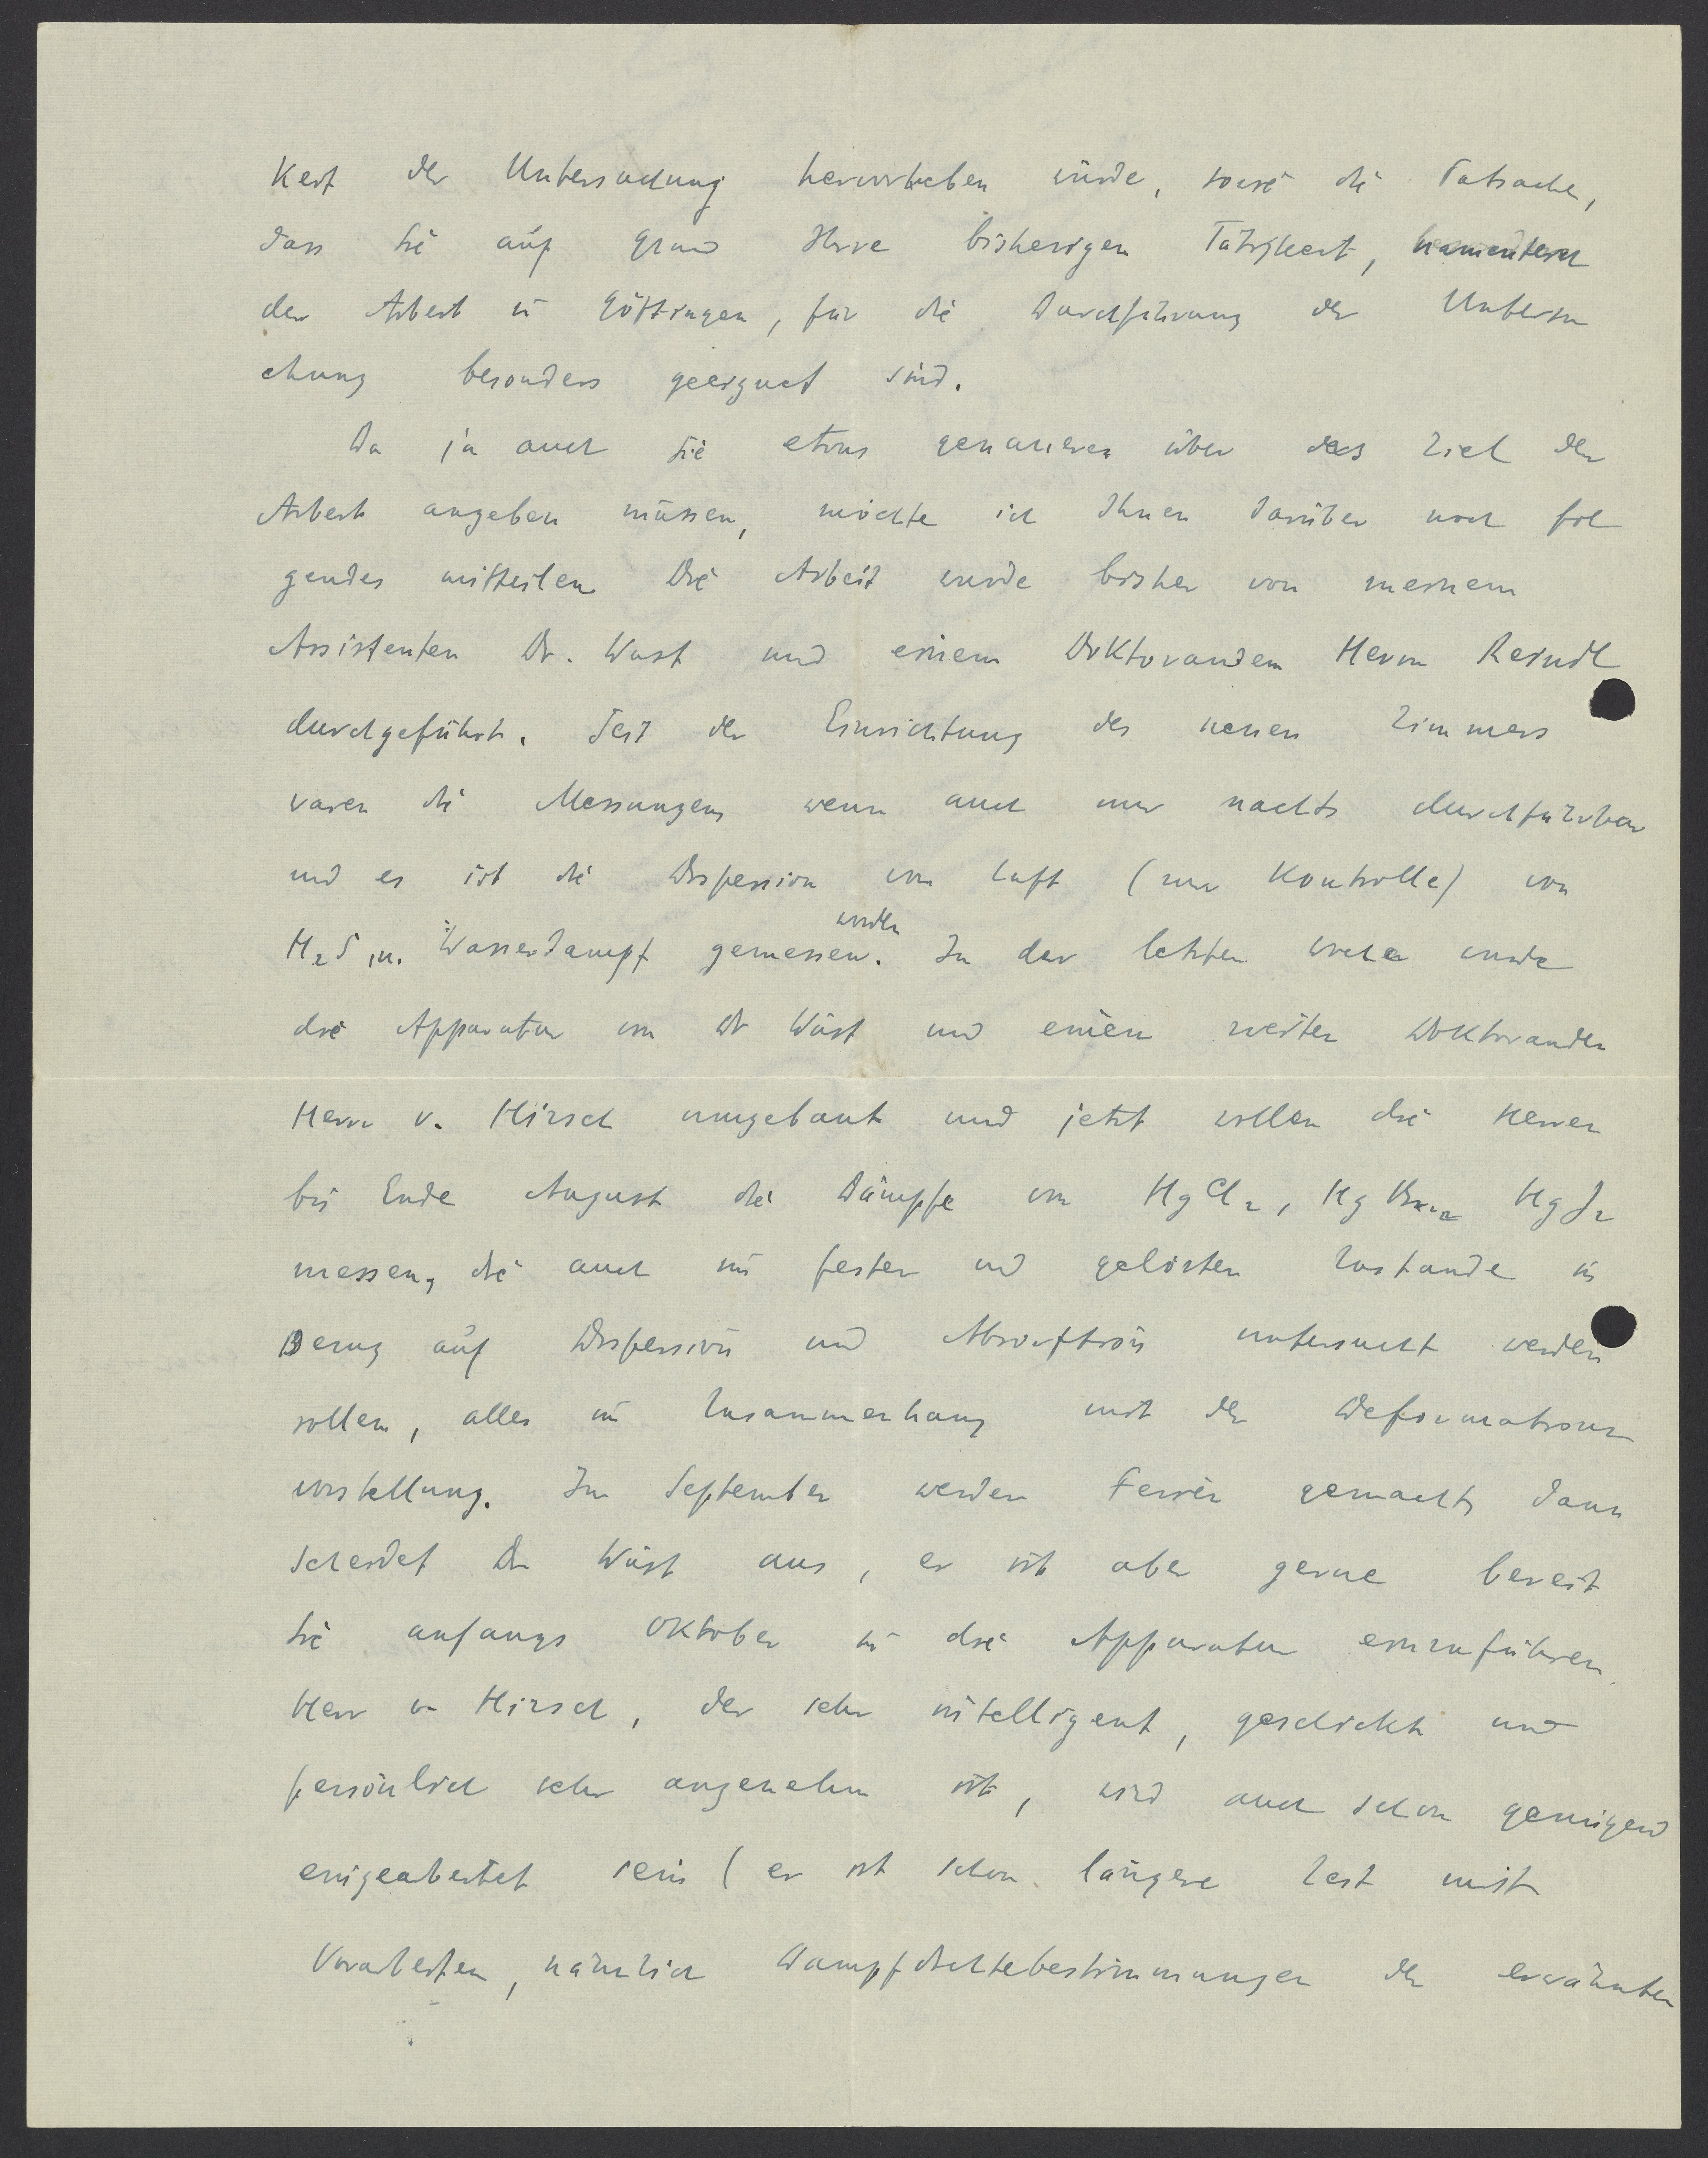 keit der Untersuchung hervorheben würde, sowie die Tatsache,
dass Sie auf Grund Ihrer bisherigen Tätigkeit, namentlich
der Arbeit in Göttingen, für die Durchführung der Untersu
chung besonders geeignet sind.
Da ja auch Sie etwas genaueres über das Ziel der
Arbeit angeben müssen, möchte ich Ihnen darüber noch fol
gendes mitteilen. Die Arbeit wurde bisher von meinem
Assistenten Dr. Wüst und einem Doktoranden Herrn Reindl
durchgeführt. Seit der Einrichtung des neuen Zimmers
waren die Messungen, wenn auch nur nachts durchführbar
und es ist die Dispersion von Luft (zur Kontrolle) von
H2S, u. Wasserdampf gemessen worden. In der letzten Woche wurde
die Apparatur von Dr Wüst und einem zweiten Doktoranden
Herrn v. Hirsch umgebaut und jetzt wollen die Herren
bis Ende August die Dämpfe von HgCl2, HgBr2 HgJ2
messen, die auch im festen und gelösten Zustande in
Bezug auf Dispersion und Absorption untersucht werden
sollen, alles im Zusammenhang mit der Deformations
vorstellung. Im September werden Ferien gemacht, dann
scheidet Dr Wüst aus, er ist aber gerne bereit
Sie anfangs Oktober in die Apparatur einzuführen.
Herr v. Hirsch, der sehr intelligent, geschickt und
persönlich sehr angenehm ist, wird auch schon genügend
eingearbeitet sein (er ist schon längere Zeit mit
Vorarbeiten, nämlich Dampfdichtebestimmungen der erwähnten